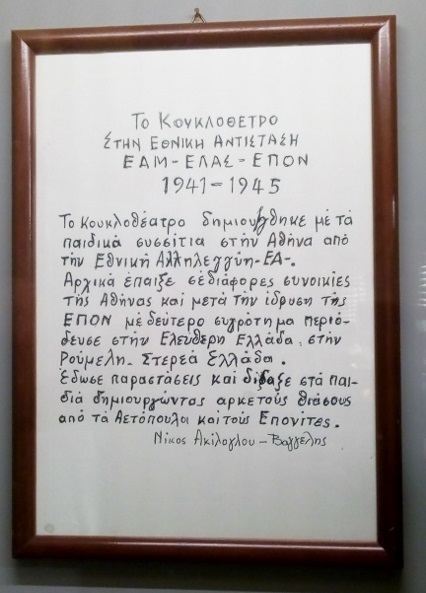 Το Κουκλοθετρο
Στην Εθνικη Αντισταση
ΕΑΜ-ΕΛΑΣ-ΕΠΟΝ
1941-1945
Το κουκλοθέατρο δημιουργθηκε μέ τά
παιδικά συσσίτια στήν Αθήνα από
τήν Εθνική Αλληλεγγύη-ΕΑ-.
Αρχικά έπαιξε σέ διάφορες συνοικίες
τής Αθήνας καί μετά τήν ίδρυση τής
ΕΠΟΝ μέ δεύτερο συγρότημα περιό-
δευσε στήν Ελεύθερη Ελλάδα, στήν
Ρούμελη. Στερεά Ελλάδα.
Εδωσε παραστάσεις καί δίδαξε στά παι-
διά δημιουργώντας αρκετούς θιάσους
από τά Αετόπουλα καί τούς Επονίτες.
Νίκος Ακίλογλου - Βαγγέλης